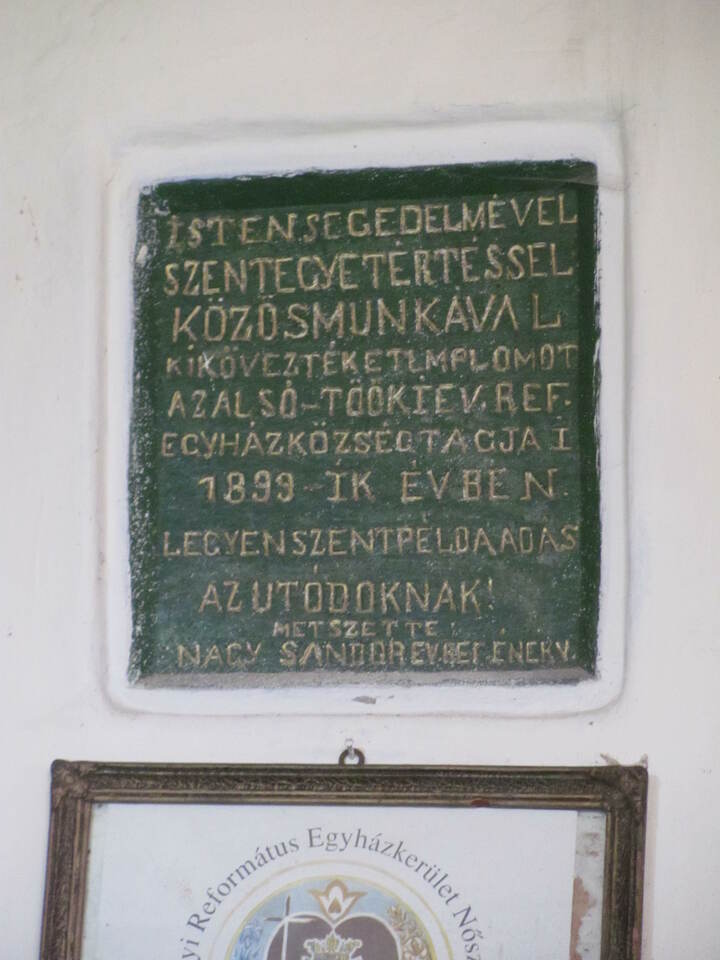 ISTEN SEGEDELMÉVEL
SZENT EGYETÉRTÉSSEL
KÖZÖS MUNKÁVAL
KIKÖVEZTÉK E TEMPLOMOT
AZ ALSÓ-TÖÖKI EV. REF.
EGYHÁZKÖZSÉG TAGJAI
1899-IK ÉVBEN.
LEGYEN SZENT PÉLDAADÁS
AZ UTÓDOKNAK!
METSZETTE
NAGY SÁNDOR EV REF. ÉNEKV.
Református Egyházkerület